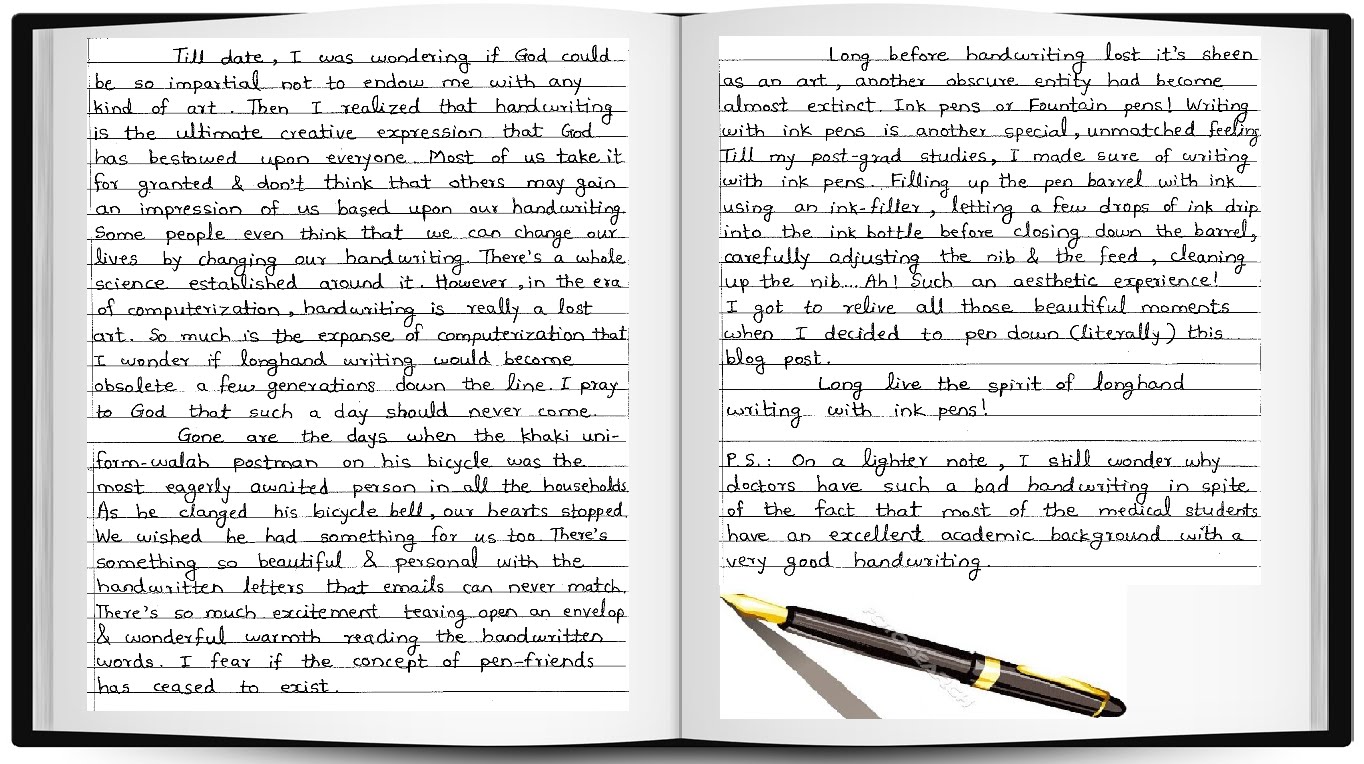 Till date, I was wondering if God could
be so impartial not to endow me with any
kind of art. Then I realized that handwriting
is the ultimate creative expression that God
has bestowed upon everyone. Most of us take it
for granted & don't think that others may gain
an impression of us based upon our handwriting.
Some people even think that we can change our
lives by changing our handwriting. There's a whole
science established around it. However, in the era
of computerization, handwriting is really a lost
art. So much is the expanse of computerization that
I wonder if longhand writing would become
obsolete a few generations down the line. I pray
to God that such a day should never come.
Gone are the days when the khaki uni-
form-walah postman on his bicycle was the
most eagerly awaited person in all the households.
As he clanged his bicycle bell, our hearts stopped.
We wished he had something for us too. There's
something so beautiful & personal with the
handwritten letters that emails can never match.
There's so much excitement tearing open an envelop
& wonderful warmth reading the handwritten
words. I fear if the concept of pen-friends
has ceased to exist.
Long before handwriting lost it's sheen
as an art, another obscure entity had become
almost extinct. Ink pens or Fountain pens! Writing
with ink pens is another special, unmatched feeling
Till my post-grad studies, I made sure of writing
with ink pens. Filling up the pen barrel with ink
using an ink-filler, letting a few drops of ink drip
into the ink bottle before closing down the barrel,
carefully adjusting the nib & the feed, cleaning
up the nib.... Ah! Such an aesthetic experience!
I got to relive all those beautiful moments
when I decided to pen down (literally) this
blog post.
Long live the spirit of longhand
writing with ink pens!
P.S.: On a lighter note, I still wonder why
doctors have such a bad handwriting in spite
of the fact that most of the medical students
have an excellent academic background with a
very good handwriting.